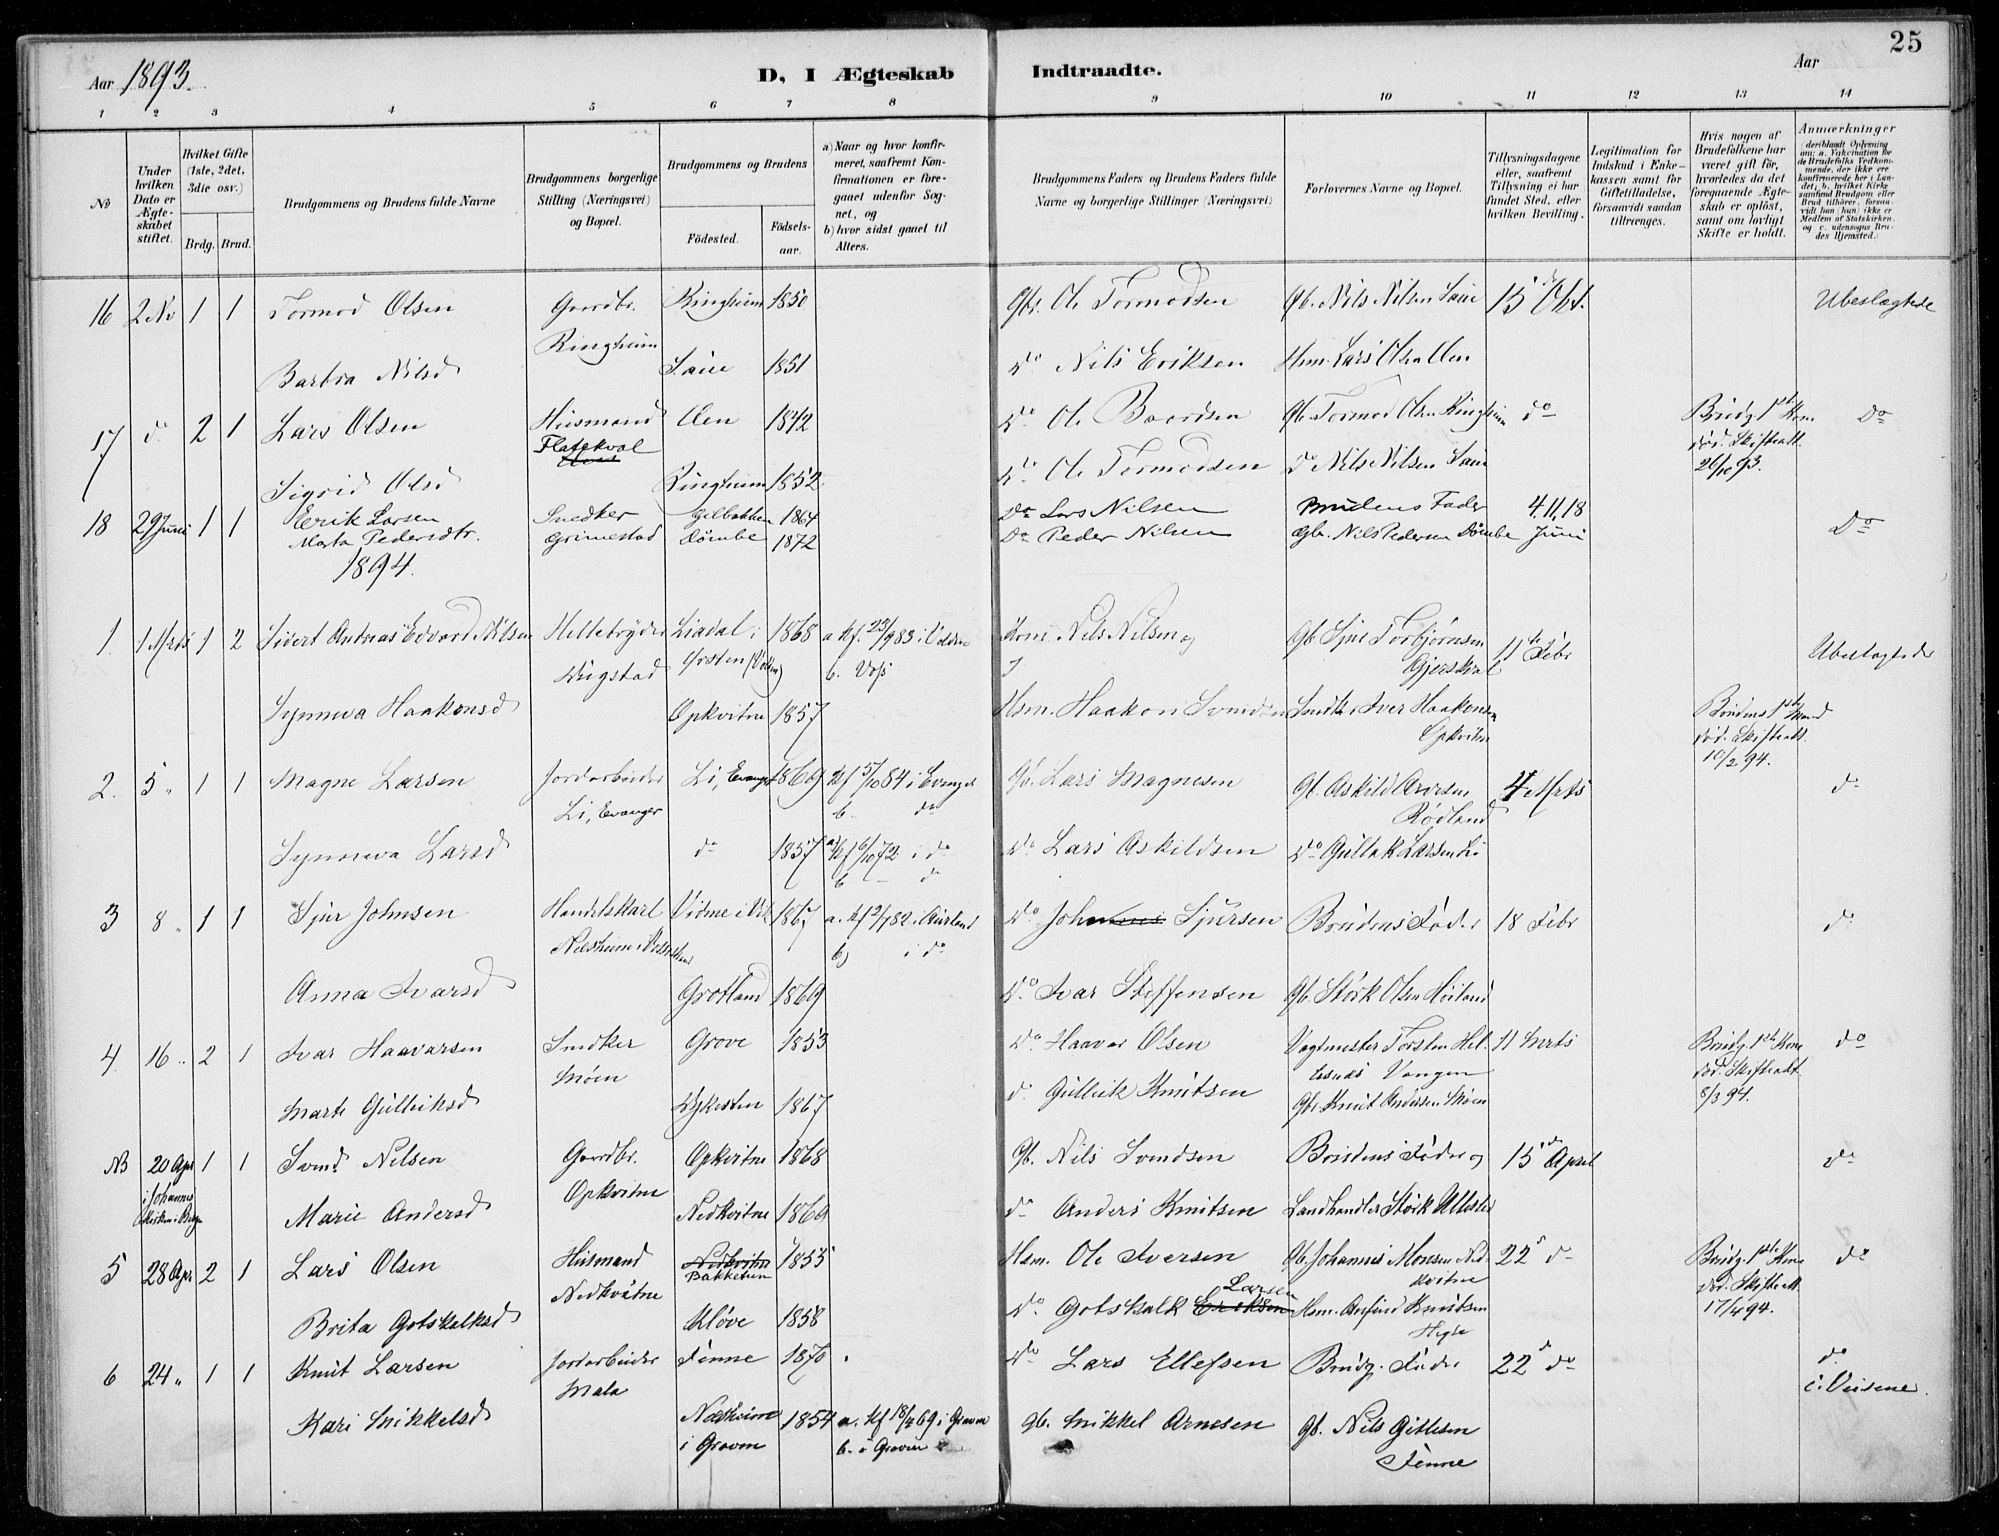 Aar 1893.
D, I Ægteskab Indtraadte.
Aar
25
1 2 3 4 5 6 7 8 9 10 11 12 13 14
No
Under hvilken Dato er Ægteskabet stiftet.
Hvilket Gifte (1ste, 2det, 3die osv.)
Brdg. Brud.
Brudgommens og Brudens fulde Navne
Brudgommens borgerlige Stilling (Næringsvei) og Bopæl.
Brudgommens og Brudens
Fødested. Fødselsaar.
a) Naar og hvor konfirmeret, saafremt Konfirmationen er foregaaet udenfor Sognet, og
b) hvor sidst gaaet til Alters.
Brudgommens Faders og Brudens Faders fulde Navne og borgerlige Stillinger (Næringsvei)
Forlovernes Navne og Bopæl.
Tillysningsdagene eller, saafremt Tillysning ei har fundet Sted, efter hvilken Bevilling.
Legitimation for Indskud i Enkekassen samt for Giftetilladelse, forsaavidt saadan tiltrænges.
Hvis nogen af Brudefolkene har været gift før, hvorledes da det foregaaende Ægteskab er opløst, samt om lovligt Skifte er holdt.
Anmærkninger (deriblandt Oplysning om: a. Vakcination for de Brudefolks Vedkommende, der ikke ere konfirmerede her i Landet; b. hvilket Kirkesamfund Brudgom eller Brud tilhører, forsaavidt han (hun) ikke er Medlem af Statskirken, og c. udensogns Brudes Hjemsted.)
16 2 Nv 1 1 Tormod Olsen Gaardbr. Ringheim Ringheim 1850 Gbr. Ole Tormodsen Gb. Nils Nilsen Saue 15d Okt. Ubeslægtede
Barbra Nilsd Saue 1851 do Nils Eriksen Hsm. Lars Olsen Uen
17 do 2 1 Lars Olsen Husmand Flatekval Uen 1842 do Ole Baardsen Gb. Tormod Olsen Ringheim do Brudg. 1ste Kone død. Skifteatt. 26/10 93. do
Sigrid Olsd Ringheim 1852 do Ole Tormodsen do Nils Nilsen Saue
18 29 Juni 1 1 Erik Larsen Snedker Gilbakken 1864 Do Lars Nilsen Brudens Fader 4.11.18 Do
Marta Pedersdtr. Grimestad Dømbe 1872 Do Peder Nilsen Gbr. Nils Pedersen Dømbe Juni
1894.
1. 1 Mrts 1 2 Sivert Andreas Edvard Nilsen Hellebryder Liadal i 1868 a. Kf. 23/9 83 i Volden Hsm. Nils Nilsen Gb. Sjur Torbjørnsen 11te Febr Ubeslægtede
Ørsten (Volden) b. Voss Gjerskval
Synneva Haakonsd Opkvitne 1857 Hsm. Haakon Svendsen Snedker Iver Haakonsen Opkvitne Brudens 1ste Mand død. Skifteatt. 10/2 94.
2. 5 " 1 1 Magne Larsen Jordarbeider Li, Evanger Li, Evanger 1869 Kf 5/10 84 i Evanger b. do Gb. Lars Magnesen Gb. Askild Rødland 4 Mrts do
Synneva Larsd do 1857 a. Kf 6/10 72 i do b - do do Lars Askildsen do Gullak Larsen Li
3 8 " 1 1 Sjur Johnsen Handelskarl Vidme i 1867 a. Kf 2/7 82 i Aurland b) i do do Johannes Sjursen Brudens Fader 18 Febr do
Anna Ivarsd Grotland 1869 do Ivar Steffensen Gb. Størk Olsen Høiland
4. 16 " 2 1 Ivar Haavarsen Snedker Møen Grove 1853 do Haavar Olsen Vagtmester Torsten Hellesnes Vangen 11 Mrts Brudg. 1ste Kone død. Skifteatt. 8/3 94. do
Marte Gulleiksd Dykesten 1867 do Gulleik Knutsen Gbr. Knut Andersen Møen
NB 20 Apr 1 1 Svend Nilsen Gaardbr. Opkvitne Opkvitne 1868 Gb. Nils Svendsen Brudens Fader og 15d April do
i Johannes Kirken i Bergen Marie Andersd Nedkvitne 1869 do Anders Knutsen Landhandler Størk Ullestad
5 28 Apr 2 1 Lars Olsen Husmand Nedkvitne Nedkvitne Bakketun 1855 Hsm. Ole Iversen Gb. Johannes Monsen Nedkvitne 22d do Brudg. 1ste Kone død. Skifteatt. 17/4 94. do
Brita Gotskalksd Kløve 1858 do Gotskalk Eriksen Larsen Hsm. Anfind Knutsen Hegle
6 24 " 1 1 Knut Larsen Jordarbeider Mala Finne 1870 do Lars Ellefsen Brudg. Fader 22d do do
Kari Mikkelsd Næsheim i Graven 1854 a. Kf 18/4 69 i Graven b. i Graven Gb. Mikkel Arnesen Gb. Nils Gitlesen Finne